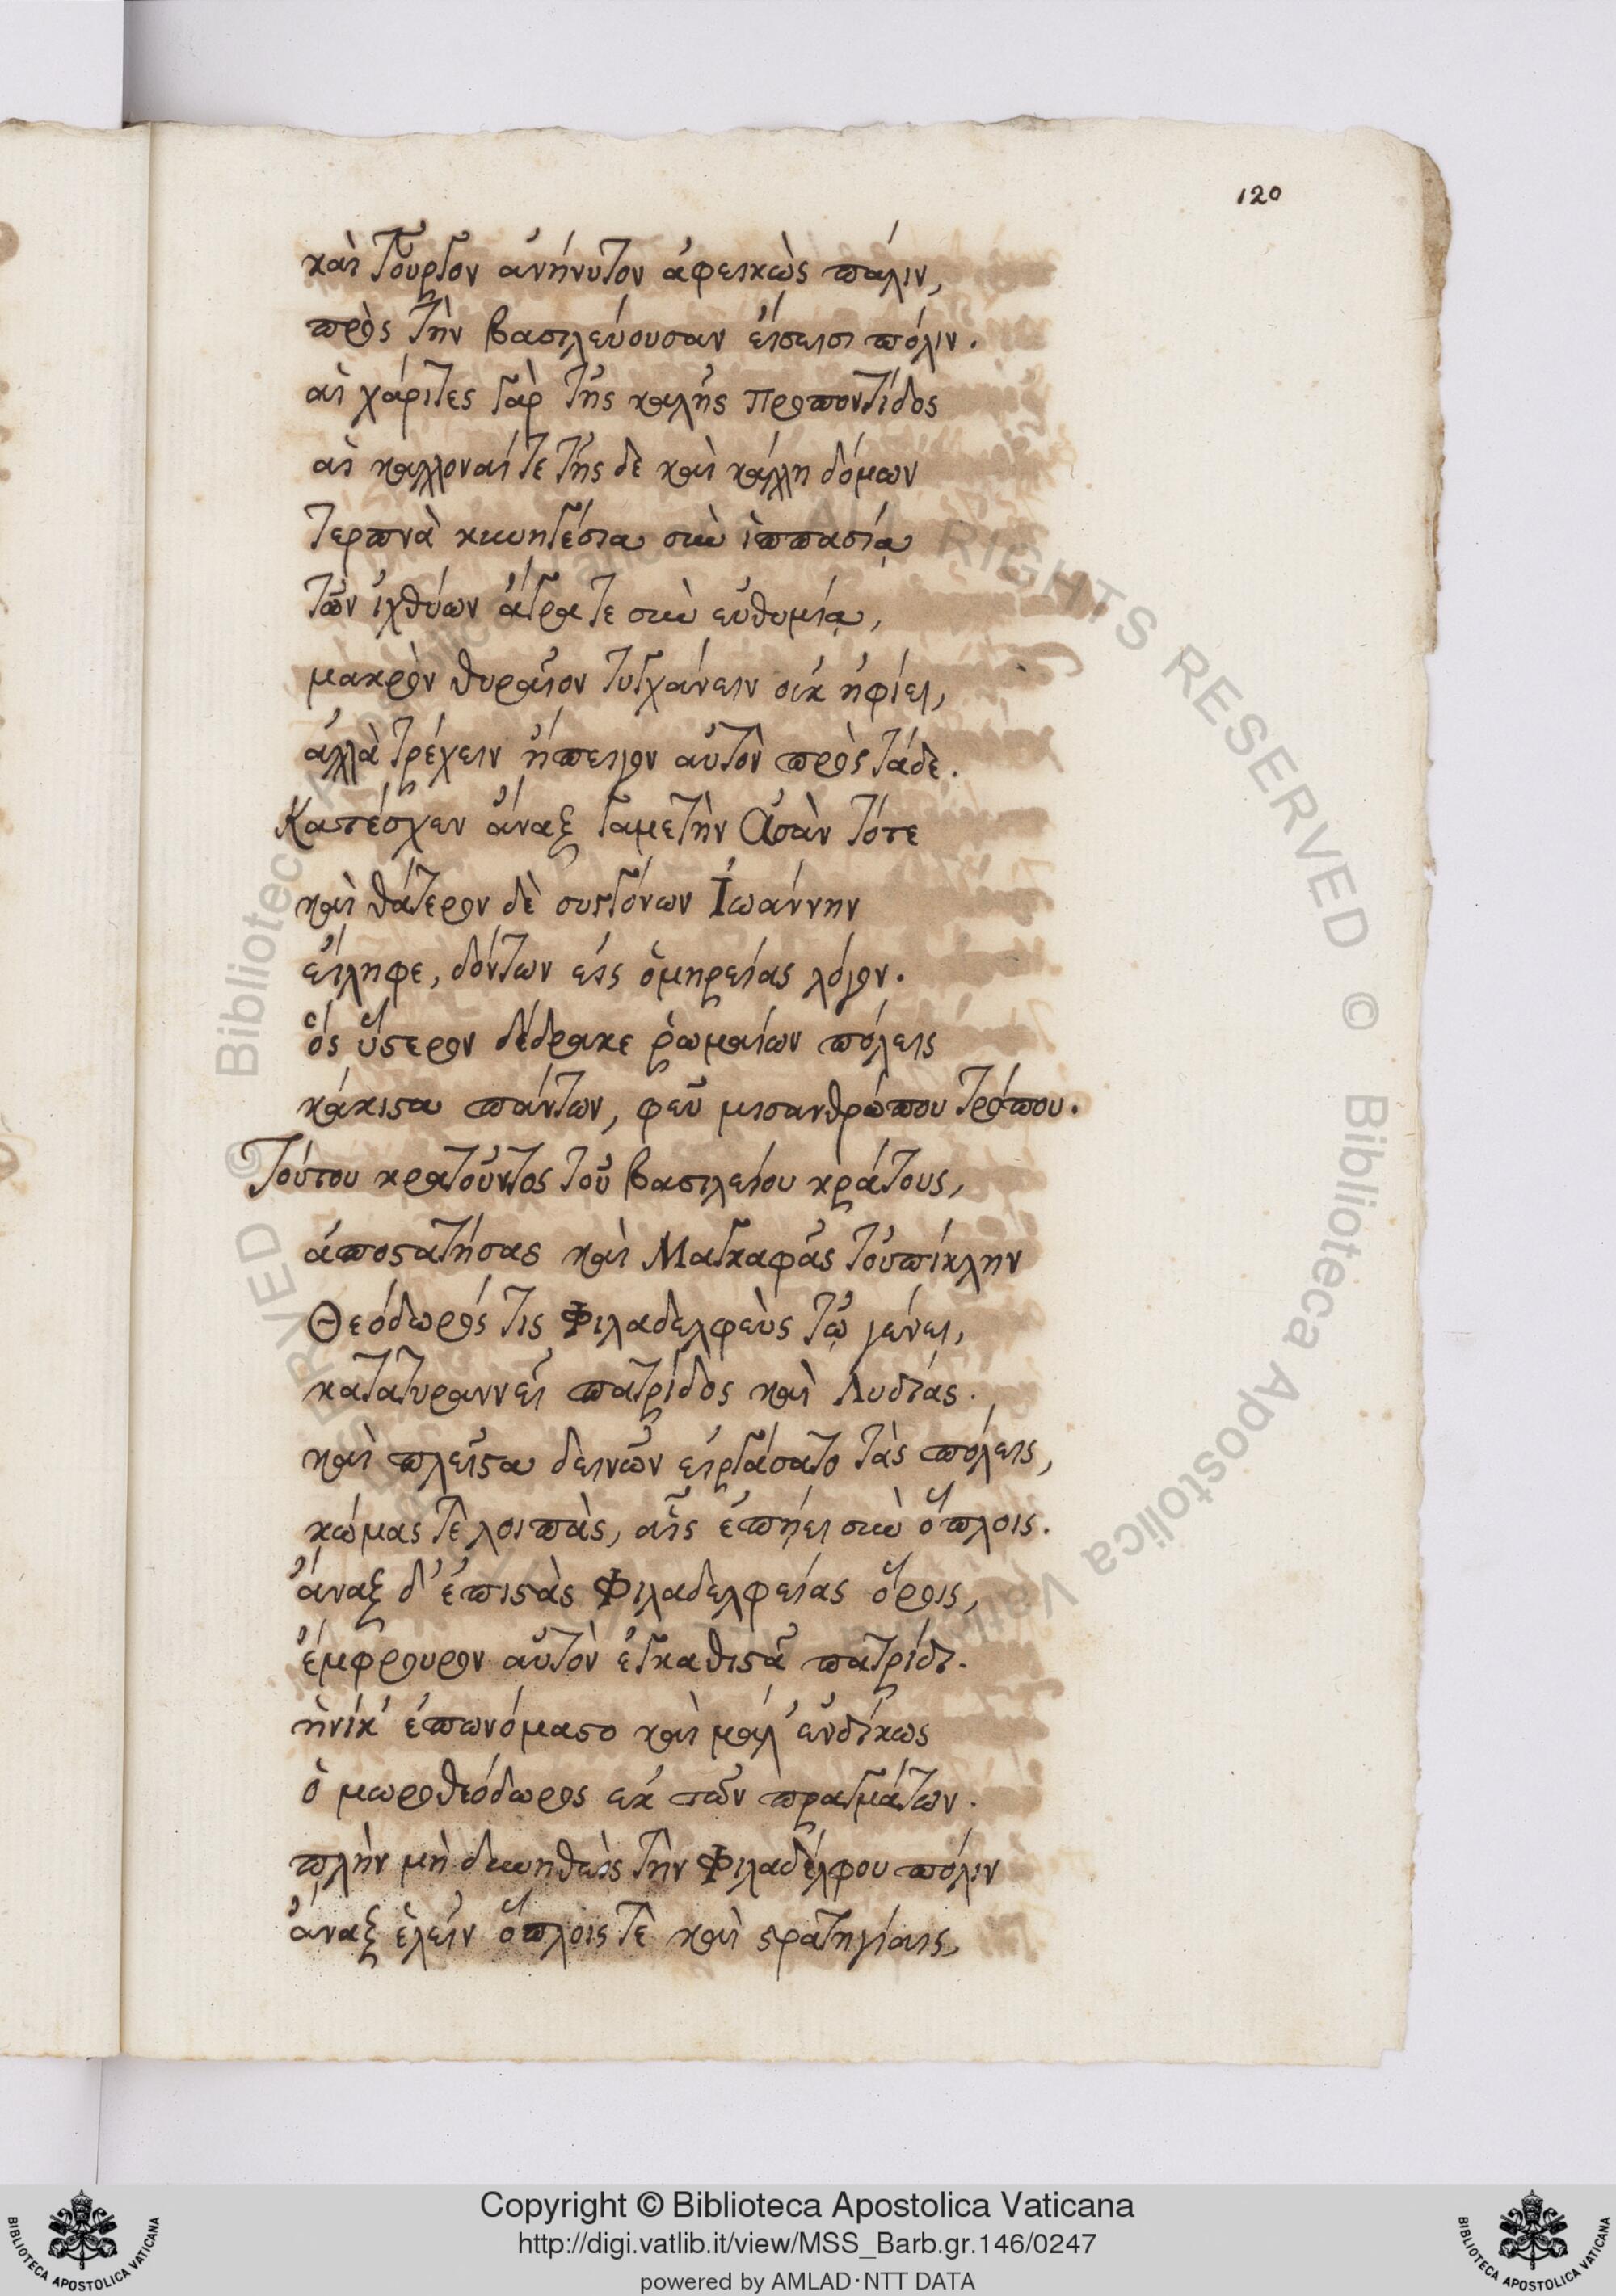 120
καὶ τοὖργον ἀνήνυτον ἀφεικὼς πάλιν,
πρὸς τὴν βασιλεύουσαν εἴσεισι πόλιν.
αἱ χάριτες γὰρ τῆς καλῆς Προποντίδος
αἱ καλλοναί τε τῆς δε καὶ κάλλη δόμων
τερπνὰ κυνηγέσια σὺν ἱππασίᾳ
τῶν ἰχθύων ἄγρα τε σὺν εὐθυμίᾳ,
μακρὸν θυραῖον τυγχάνειν οὐκ ἠφίει,
ἀλλὰ τρέχειν ἤπειγον αὐτὸν πρὸς τάδε.
Κατέσχεν ἄναξ γαμετὴν Ἀσὰν τότε
καὶ θάτερον δὲ συγγόνων Ἰωάννην
εἴληφε, δόντων εἰς ὁμηρείας λόγον.
ὃς ὕστερον δέδρακε ῥωμαίων πόλεις
κάκιστα πάντων, φεῦ μισανθρώπου τρόπου.
Τούτου κρατοῦντος τοῦ βασιλείου κράτους,
ἀποστατήσας καὶ Μαγκαφᾶς τοὐπίκλην
Θεόδωρός τις Φιλαδελφεὺς τῷ γένει,
κατατυραννεῖ πατρίδος καὶ Λυδίας.
καὶ πλεῖστα δεινῶν εἰργάσατο τὰς πόλεις,
κώμας τὲ λοιπὰς, αἷς ἐπῄει σὺν ὅπλοις.
ἄναξ δ' ἐπιστὰς Φιλαδελφείας ὅροις,
ἔμφρουρον αὐτὸν ἐγκαθιστᾷ πατρίδι.
ἡνίκ' ἐπωνόμαστο καὶ μάλ' ἐνδίκως
ὁ μωροθεόδωρος ἐκ τῶν πραγμάτων.
πλὴν μὴ δυνηθεὶς τὴν Φιλαδέλφου πόλιν
ἄναξ ἑλεῖν ὅπλοις τὲ καὶ στρατηγίαις,
Copyright © Biblioteca Apostolica Vaticana
http://digi.vatlib.it/view/MSS_Barb.gr.146/0247
powered by AMLAD·NTT DATA
BIBLIOTECA APOSTOLICA VATICANA
BIBLIOTECA APOSTOLICA VATICANA